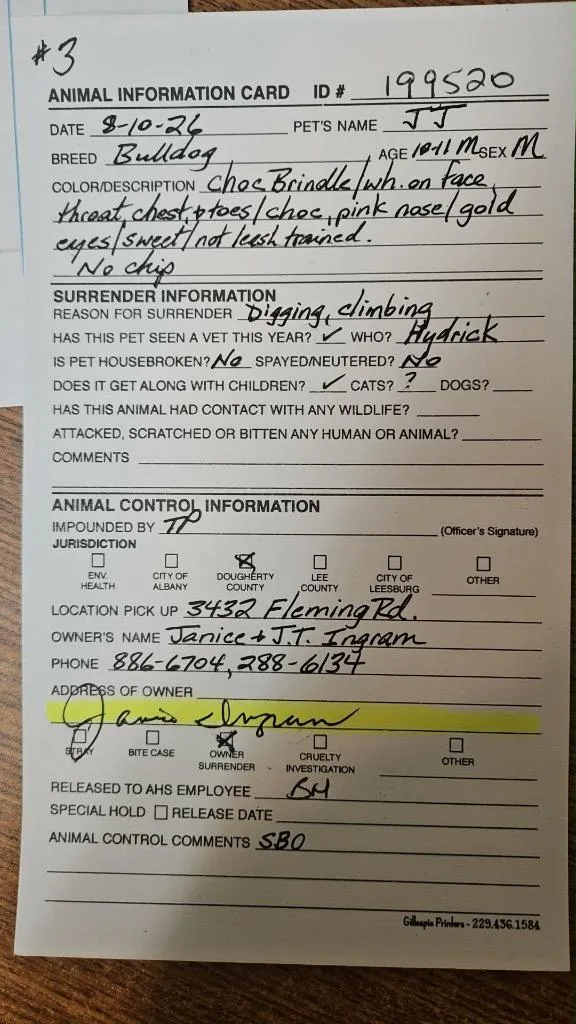 #3
ANIMAL INFORMATION CARD ID # 199520
DATE 8-10-26 PET'S NAME JJ
BREED Bulldog AGE 10-11 M SEX M
COLOR/DESCRIPTION Choc Brindle/wh. on face,
throat, chest, & toes/choc, pink nose/gold
eyes/sweet/not leash trained.
No chip
SURRENDER INFORMATION
REASON FOR SURRENDER Digging, climbing
HAS THIS PET SEEN A VET THIS YEAR? ✓ WHO? Hydrick
IS PET HOUSEBROKEN? No SPAYED/NEUTERED? No
DOES IT GET ALONG WITH CHILDREN? ✓ CATS? ? DOGS?
HAS THIS ANIMAL HAD CONTACT WITH ANY WILDLIFE?
ATTACKED, SCRATCHED OR BITTEN ANY HUMAN OR ANIMAL?
COMMENTS
ANIMAL CONTROL INFORMATION
IMPOUNDED BY TP (Officer's Signature)
JURISDICTION
☐ ☐ ☒ ☐ ☐ ☐
ENV. HEALTH CITY OF ALBANY DOUGHERTY COUNTY LEE COUNTY CITY OF LEESBURG OTHER
LOCATION PICK UP 3432 Fleming Rd.
OWNER'S NAME Janice & J.T. Ingram
PHONE 886-6704, 288-6134
ADDRESS OF OWNER
Janice Ingram
☐ ☐ ☒ ☐ ☐
STRAY BITE CASE OWNER SURRENDER CRUELTY INVESTIGATION OTHER
RELEASED TO AHS EMPLOYEE BH
SPECIAL HOLD ☐ RELEASE DATE
ANIMAL CONTROL COMMENTS SBO
Gillespie Printers - 229.436.1584